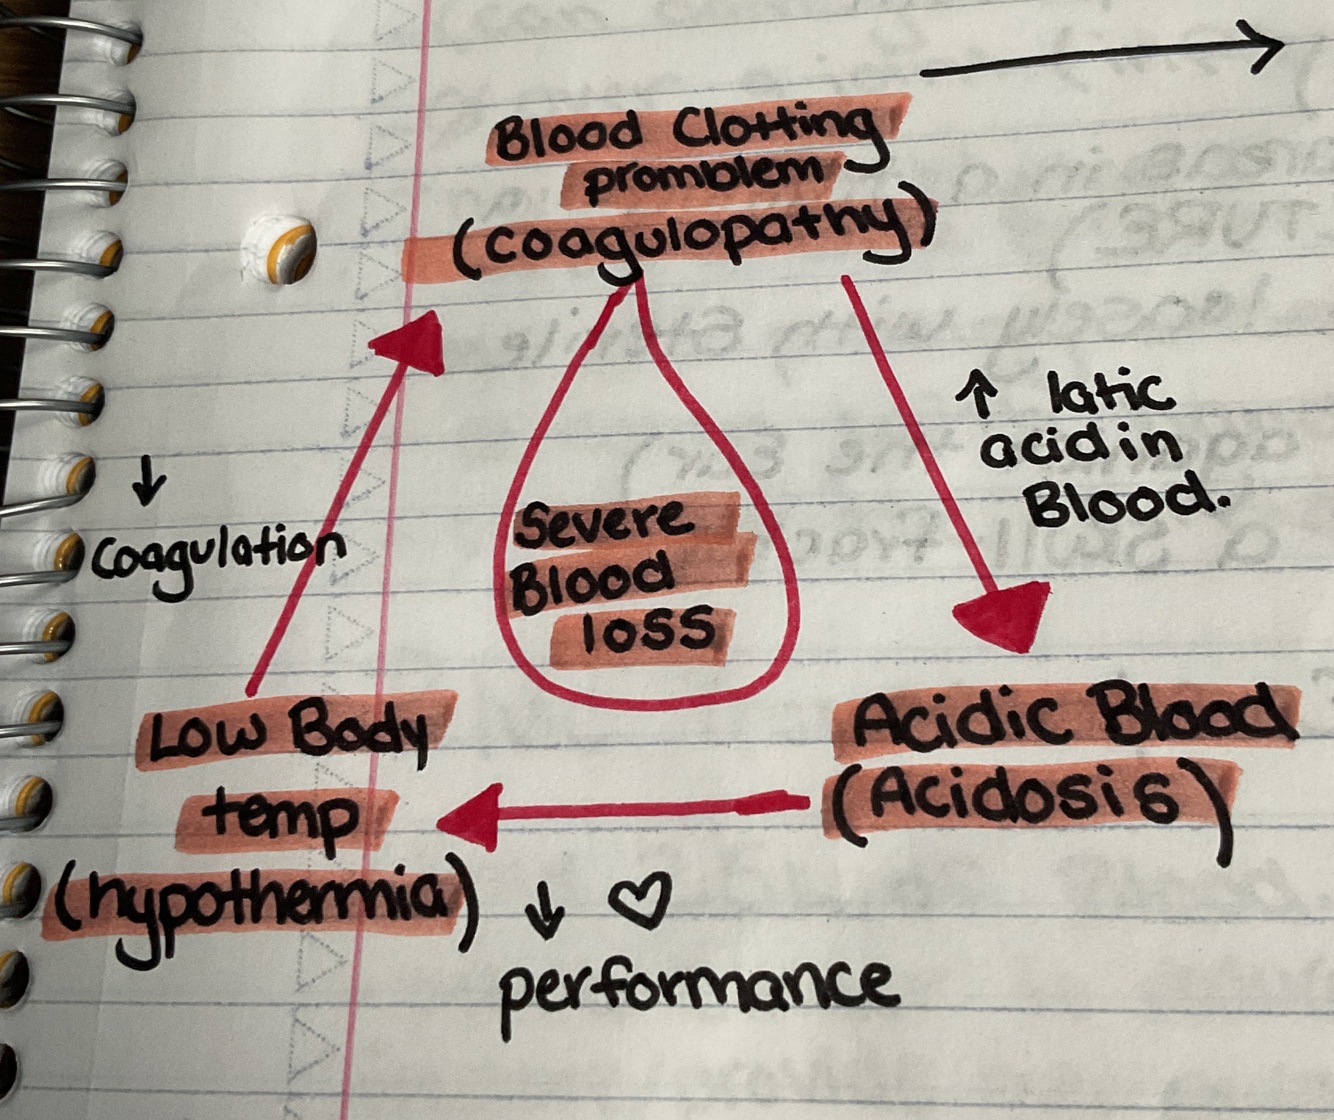 Blood Clotting
promblem
(coagulopathy)
↑ latic
acid in
Blood.
↓
Coagulation
Severe
Blood
loss
Low Body
temp
(hypothermia)
Acidic Blood
(Acidosis)
↓ ♡
performance